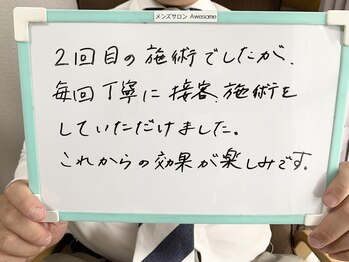 メンズサロン Awesome
2回目の施術でしたが、
毎回丁寧に接客、施術を
していただけました。
これからの効果が楽しみです。